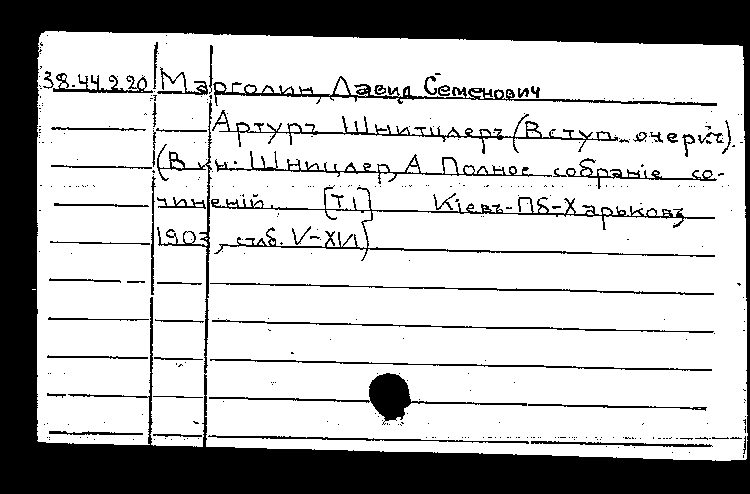 38.44.2.20 Марголин, Давид Семенович
Артуръ Шнитцлеръ (Вступ. очеркъ).
(В кн: Шницлер, А. Полное собранiе со-
чиненiй. [Т.1.] Кiевъ-Пб-Харьковъ
1903, стлб. V-XVI)